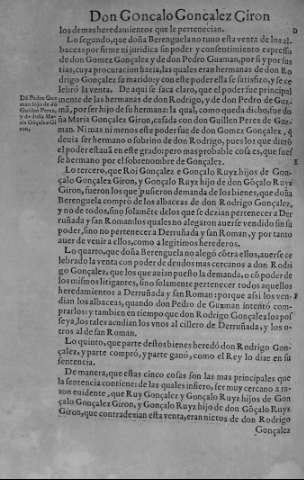 Don Gonçalo Gonçalez Giron
los demas heredamientos que le pertenecian.
Lo segundo, que doña Berenguela no tuuo esta venta de los al-
baceas por firme ni juridica sin poder y consentimiento expresso
de don Gomez Gonçalez y de don Pedro Guzman, por si y por sus
tias, cuya procuracion hazia, las quales eran hermanas de don Ro
drigo Gonçalez su marido; y con este poder ella se satisfizo, y se ce
lebrò la venta. De aqui se saca claro, que el poder fue principal
mente de las hermanas de don Rodrigo, y de don Pedro de Guz-
mā, por ser hijo de su hermana: la qual, como queda dicho, fue do
ña Maria Gonçalez Giron, casada con don Guillen Perez de Guz-
man. Ni mas ni menos este poder fue de don Gomez Gonçalez, q̄
deuia ser hermano o sobrino de don Rodrigo, pues los que dieró
el poder estauā en este grado: pero mas probable cosa es, que fues
se hermano por el sobrenombre de Gonçalez.
Lo tercero, que Roi Gonçalez e Gonçalo Ruyz hijos de Gon-
çalo Gonçalez Giron, y Gonçalo Ruyz hijo de don Gōçalo Ruyz
Giron, fueron los que pusieron demanda de los bienes, que doña
Berenguela comprò de los albaceas de don Rodrigo Gonçalez,
y no de todos, sino solamēte delos que se dezian pertenecer a Der
ruñada y san Roman: los quales no alegaron auerse vendido sin su
poder, sino no pertenecer a Derruñada y san Roman, y por tanto
auer de venir a ellos, como a legitimos herederos.
Lo quarto, que doña Berenguela no alegò cōtra ellos, auerse ce
lebrado la venta con poder de deudos mas cercanos a don Rodri
go Gonçalez, que los que auian puesto la demanda, o cō poder de
los mismos litigantes, sino solamente pertenecer todos aquellos
heredamientos a Derruñada y san Roman: porque assi los ven-
dian los albaceas, quando don Pedro de Guzman intentò com-
prarlos: y tambien en tiempo que don Rodrigo Gonçalez los pos
seya, los tales acudian los vnos al cillero de Derruñada, y los o-
tros al de san Roman.
Lo quinto, que parte destos bienes heredò don Rodrigo Gon-
çalez, y parte comprò, y parte ganò, como el Rey lo dize en su
sentencia.
De manera, que estas cinco cosas son las mas principales que
la sentencia contiene: de las quales infiero, ser muy cercano a ra-
zon euidente, que Ruy Gonçalez y Gonçalo Ruyz hijos de Gon
çalo Gonçalez Giron, y Gonçalo Ruyz hijo de don Gōçalo Ruyz
Giron, que contradezian esta venta, eran nietos de don Rodrigo
Gonçalez
Dō Pedro Guz
man hijo de dō
Guillen Perez,
y de doña Ma-
ria Gōçalez Gi-
ron,